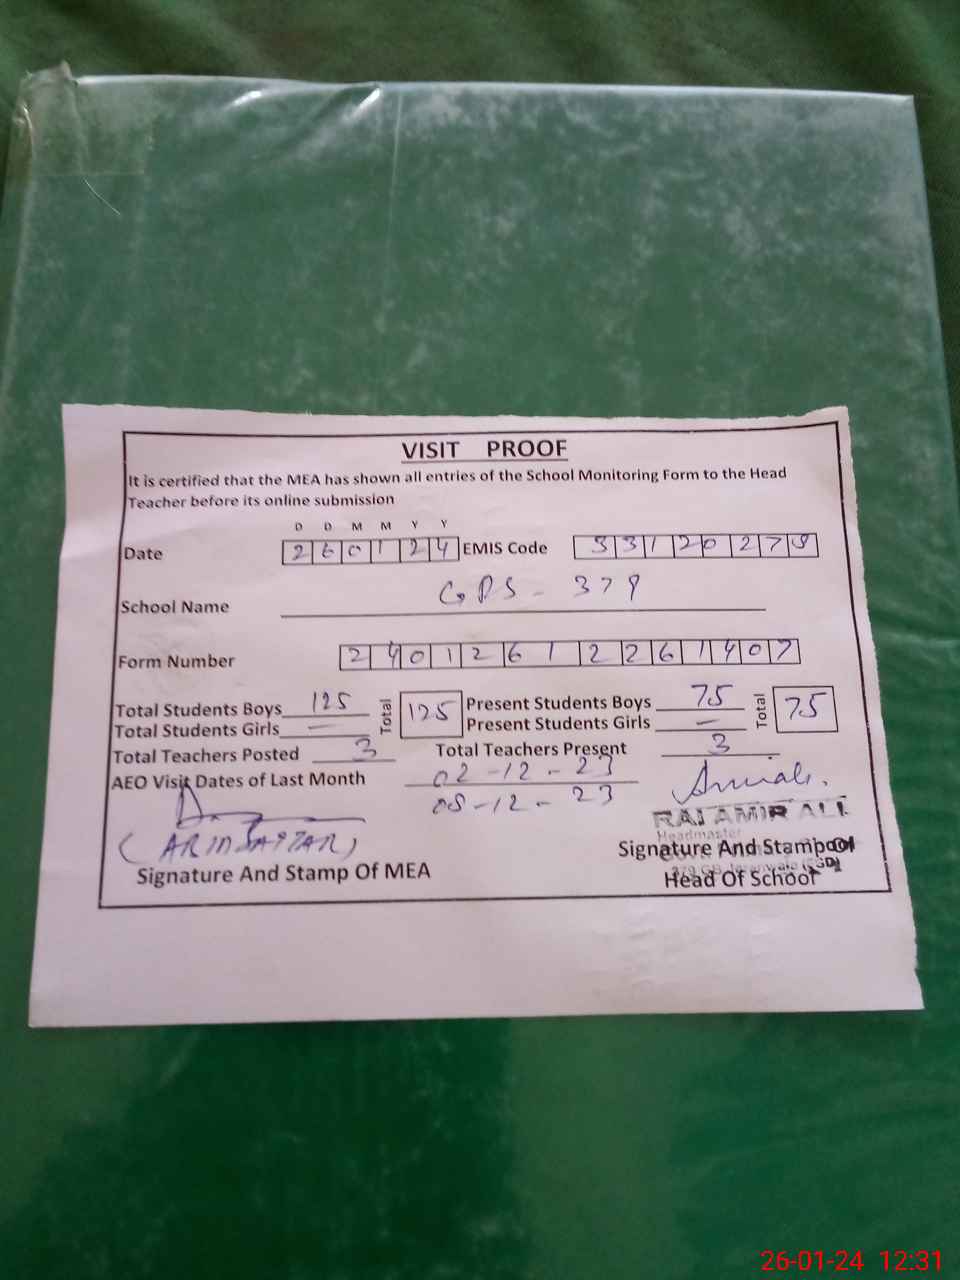 VISIT PROOF
It is certified that the MEA has shown all entries of the School Monitoring Form to the Head
Teacher before its online submission
D D M M Y Y
Date 260124 EMIS Code 33120279
School Name GPS - 379
Form Number 24012612261407
Total Students Boys 125 Total 125 Present Students Boys 75 Total 75
Total Students Girls — Present Students Girls —
Total Teachers Posted 3 Total Teachers Present 3
AEO Visit Dates of Last Month 02-12-23
08-12-23
RAI AMIR ALI
Headmaster
Signature And Stamp Of
379 GB Jaranwala (FSD)
Signature And Stamp Of MEA Head Of School
26-01-24 12:31